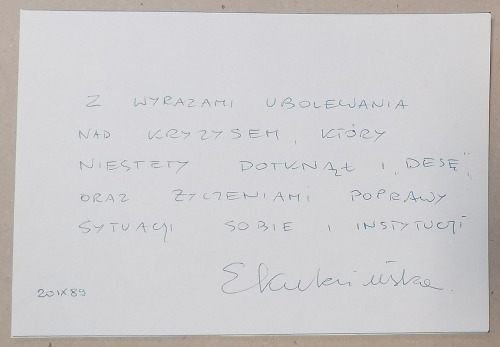 Z WYRAZAMI UBOLEWANIA
NAD KRYZYSEM, KTÓRY
NIESTETY DOTKNĄŁ I „DESĘ”,
ORAZ ŻYCZENIAMI POPRAWY
SYTUACJI SOBIE I INSTYTUCJI
20 IX 89